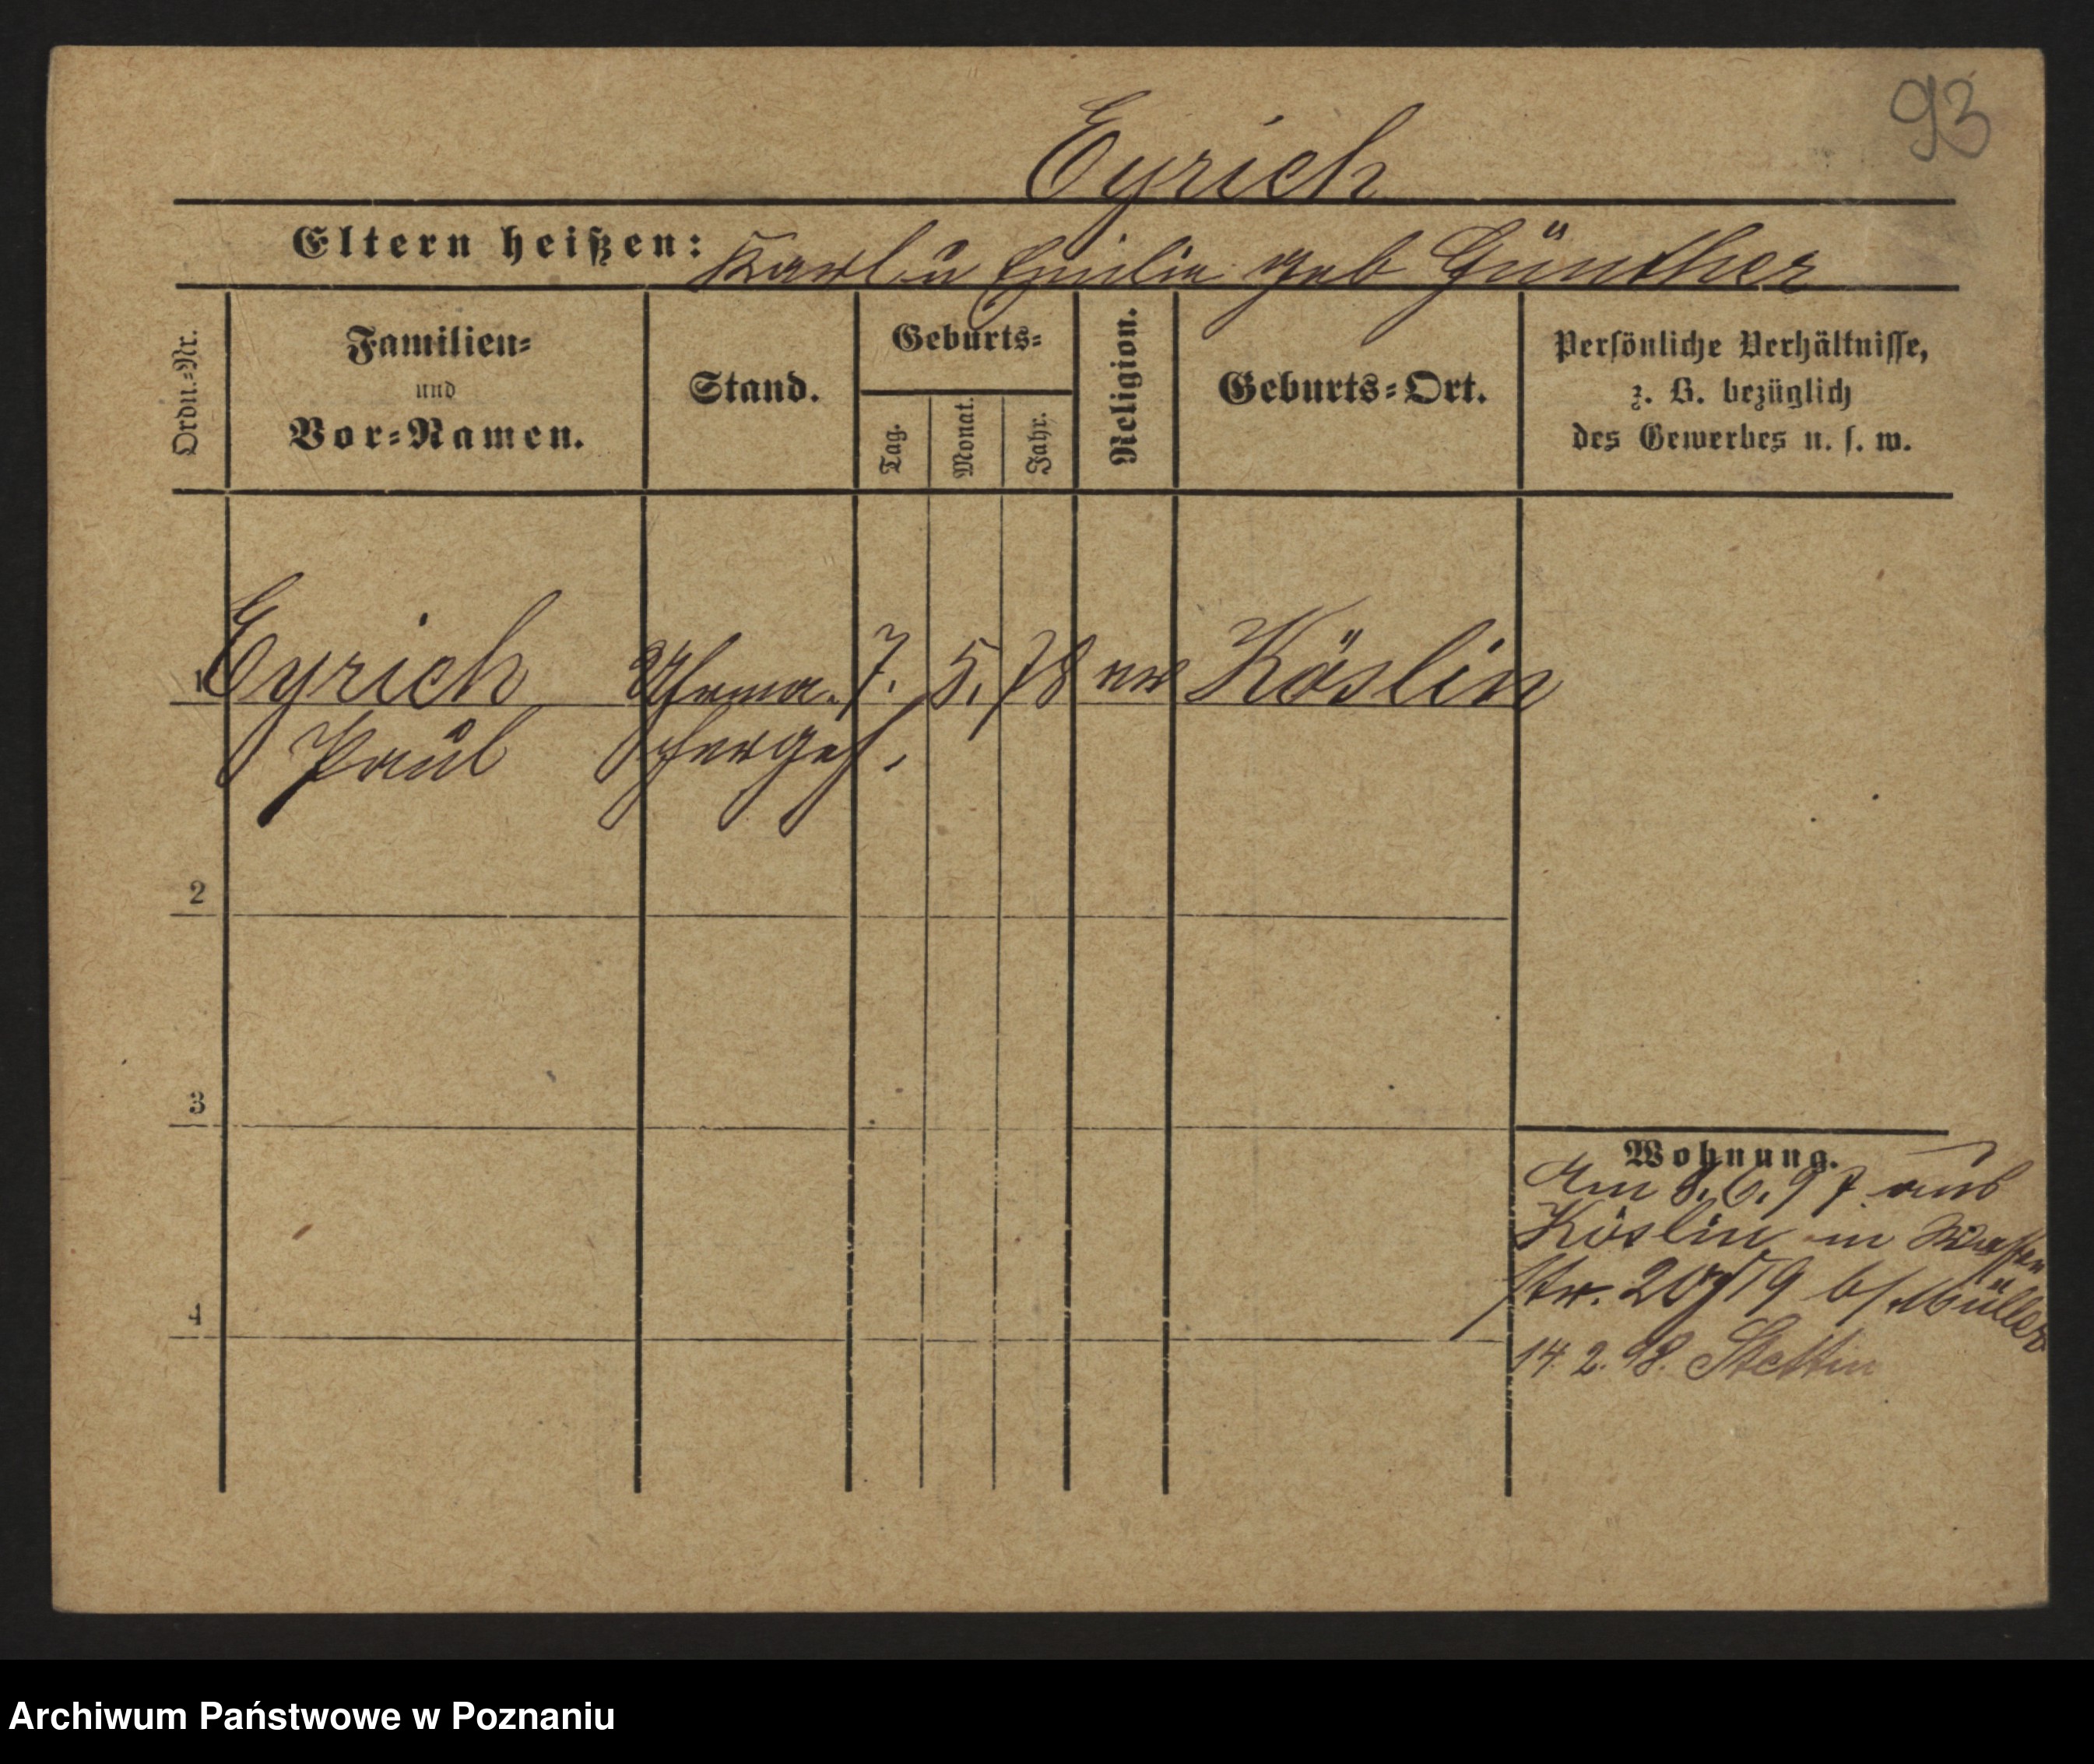 93
Eyrich
Eltern heißen: Karl u Emilie geb Günther
Ordn.-Nr.
Familien-
und
Vor-Namen.
Stand.
Geburts-
Tag.
Monat.
Jahr.
Religion.
Geburts-Ort.
Persönliche Verhältnisse,
z. B. bezüglich
des Gewerbes u. s. w.
1 Eyrich Uhrma- 7. 5. 78 ev Köslin
Paul chergeh.
2
3
4
Wohnung.
Am 8.6.97 aus
Köslin in
str. b/ Müller
14. 2. 98. Stettin
Archiwum Państwowe w Poznaniu